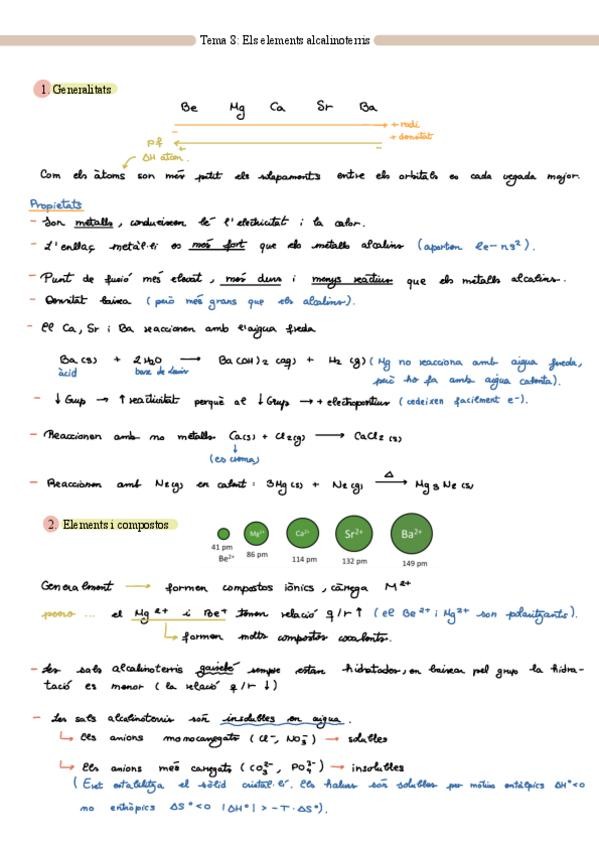 Tema 8: Els elements alcalinoterris
1 Generalitats
Be Mg Ca Sr Ba
+ radi
+ densitat
Pf
ΔH atom.
Com els àtoms son més petit els solapaments entre els orbitals es cada vegada major.
Propietats
- Son metalls, condueixen bé l'electricitat i la calor.
- L'enllaç metàl·lic es més fort que els metalls alcalins (aporten 2e- ns²).
- Punt de fusió més elevat, més durs i menys reactius que els metalls alcalins.
- Densitat baixa (però més grans que els alcalins).
- El Ca, Sr i Ba reaccionen amb l'aigua freda
Ba (s) + 2 H2O → Ba(OH)2 (aq) + H2 (g) (Mg no reacciona amb aigua freda,
àcid base de Lewis però ho fa amb aigua calenta).
- ↓ Grup → ↑ reactivitat perquè al ↓ Grup → + electropositius (cedeixen facilment e-).
- Reaccionen amb no metalls Ca(s) + Cl2(g) → CaCl2 (s)
(es crema)
- Reaccionen amb N2(g) en calent: 3Mg(s) + N2(g) Δ→ Mg3N2 (s)
2. Elements i compostos
Mg2+ Ca2+ Sr2+ Ba2+
41 pm 86 pm 114 pm 132 pm 149 pm
Be2+
Generalment → formen compostos iònics, càrrega M2+
però ... el Mg2+ i Be+ tenen relació q/r ↑ (el Be2+ i Mg2+ son polaritzants).
formen molts compostos covalents.
- Les sals alcalinoterris gairebé sempre estan hidratades, en baixar pel grup la hidra-
tació es menor (la relació q/r ↓)
- Les sals alcalinoterris són insolubles en aigua.
Els anions monocarregats (Cl-, NO3-) → solubles
Els anions més carregats (CO3 2-, PO4 3-) → insolubles
(Exet estabilitza el sòlid cristal·lí. Els halurs són solubles per motius entàlpics ΔH°<0
no entròpics ΔS°<0 |ΔH°| > -T·ΔS°).